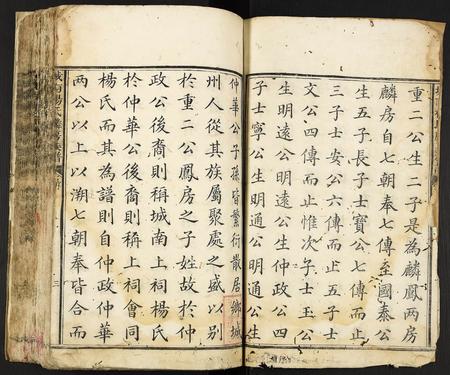 重二公生二子是為麟鳳兩房
麟房自七朝奉七傳至國泰公
生五子長子士寶公七傳而止
三子士安公六傳而止五子士
文公四傳而止惟次子士玉公
生明遠公生仲政公四
子士寧公生明通公明通公生
仲華公子孫皆繁衍散居鄉城
州人從其族屬聚處之盛以別
於重二公鳳房之子姓故於仲
政公後裔則稱城南上祠楊氏
於仲華公後裔則稱上祠會同
楊氏而其為譜則自仲政仲華
兩公以上以溯七朝奉皆合而
三